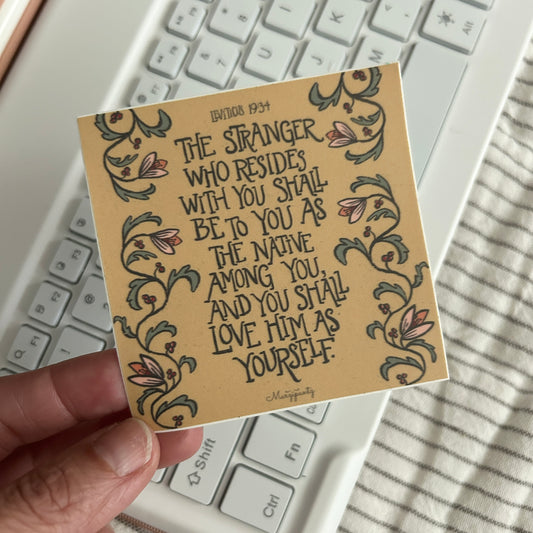 LEVITICUS 19:34
THE STRANGER
WHO RESIDES
WITH YOU SHALL
BE TO YOU AS
THE NATIVE
AMONG YOU,
AND YOU SHALL
LOVE HIM AS
YOURSELF.
Shift
Fn
Ctrl
Alt